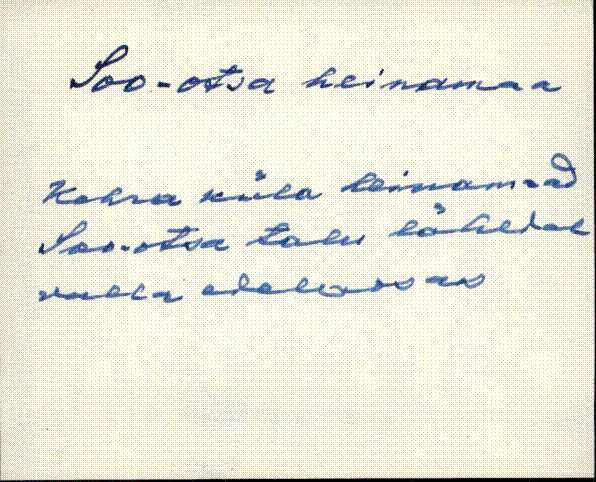 Soo-otsa heinamaa
Kehra küla heinamaad
Soo-otsa talu lähedal
valla edelaosas